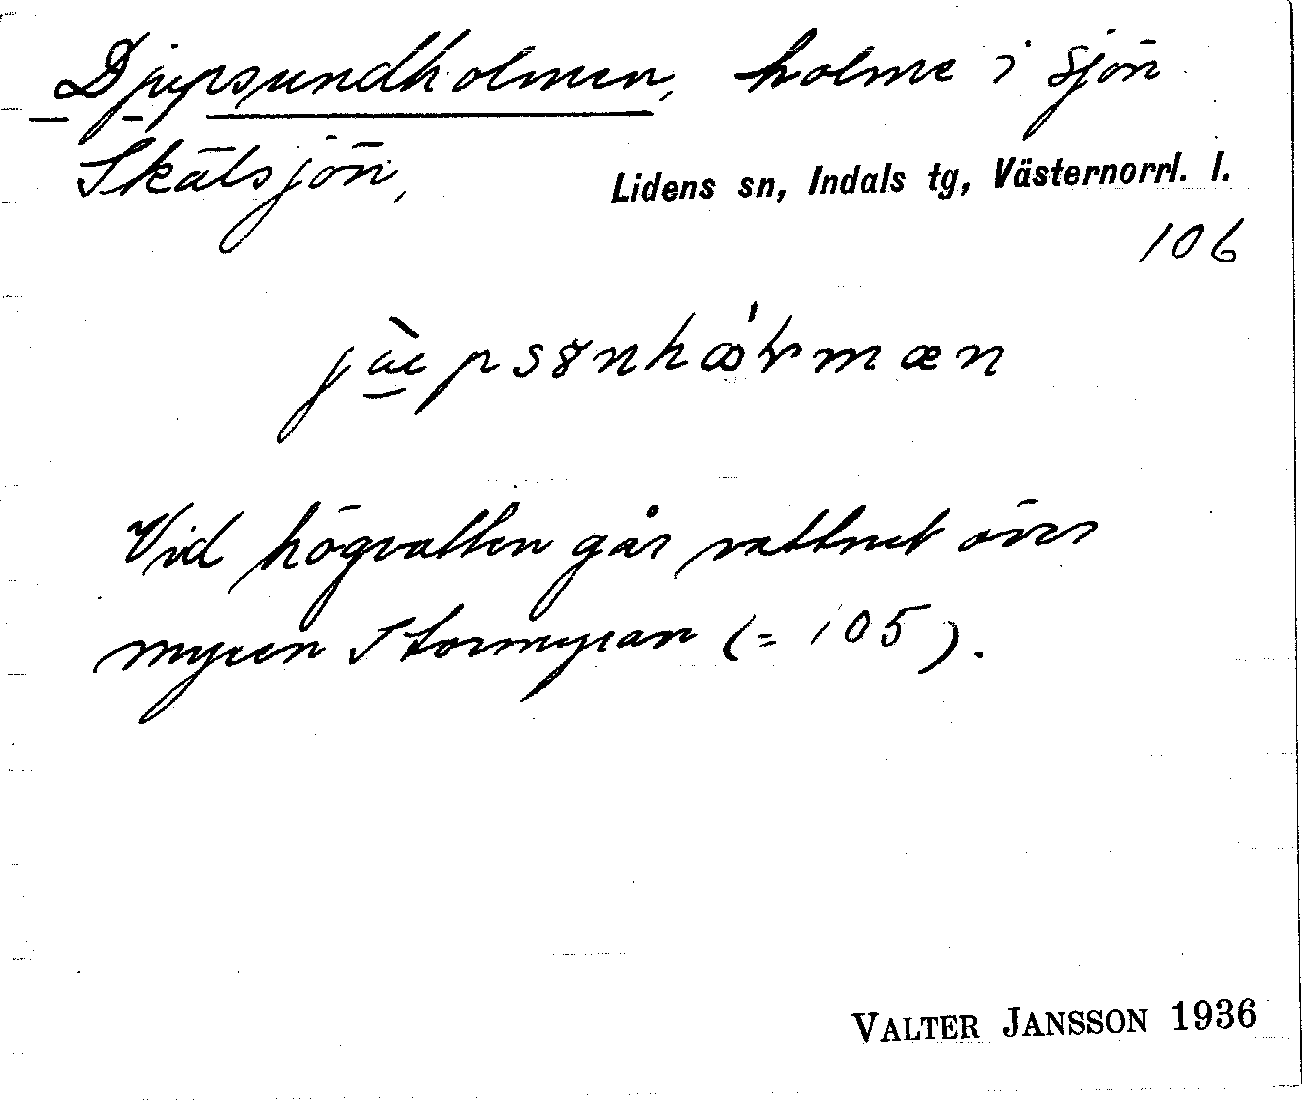 Djupsundholmen, holme i sjön
Skälsjön,
Lidens sn, Indals tg, Västernorrl. l.
106
Vid högvatten går vattnet över
myren Stormyran (= 105).
VALTER JANSSON 1936